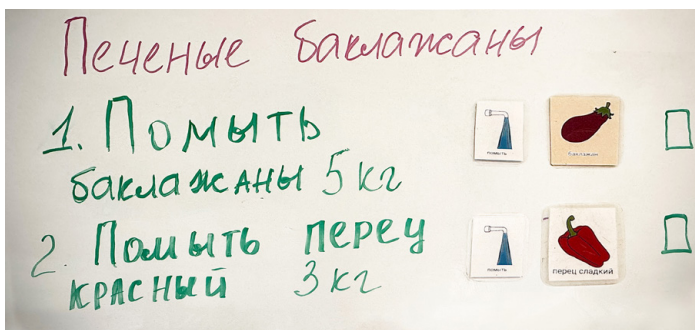 Печеные баклажаны
1. Помыть
баклажаны 5 кг
помыть
баклажан
2. Помыть перец
красный 3 кг
помыть
перец сладкий